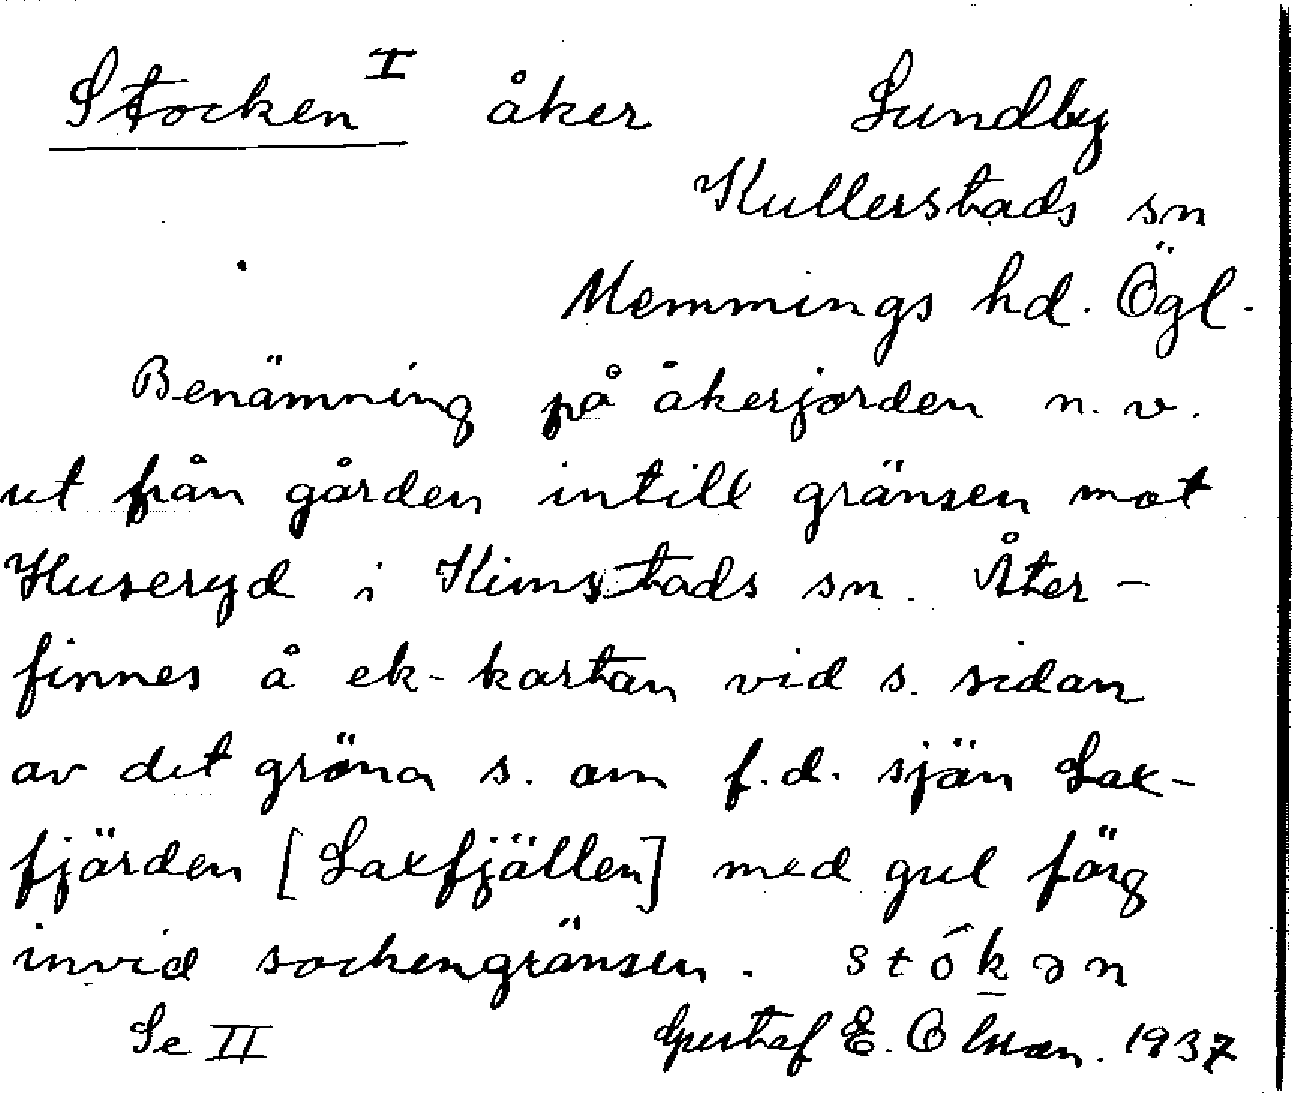 Stocken I åker Lundby
Kullerstads sn
Memmings hd. Ögl.
Benämning på åkerjorden n.v.
ut från gården intill gränsen mot
Huseryd i Kimstads sn. Åter-
finnes å ek-kartan vid s. sidan
av det gröna s. om f.d. sjön Lax-
fjärden [Laxfjällen] med gul färg
invid sockengränsen. stók̲ən
Se II Gustaf E. Olsson. 1937